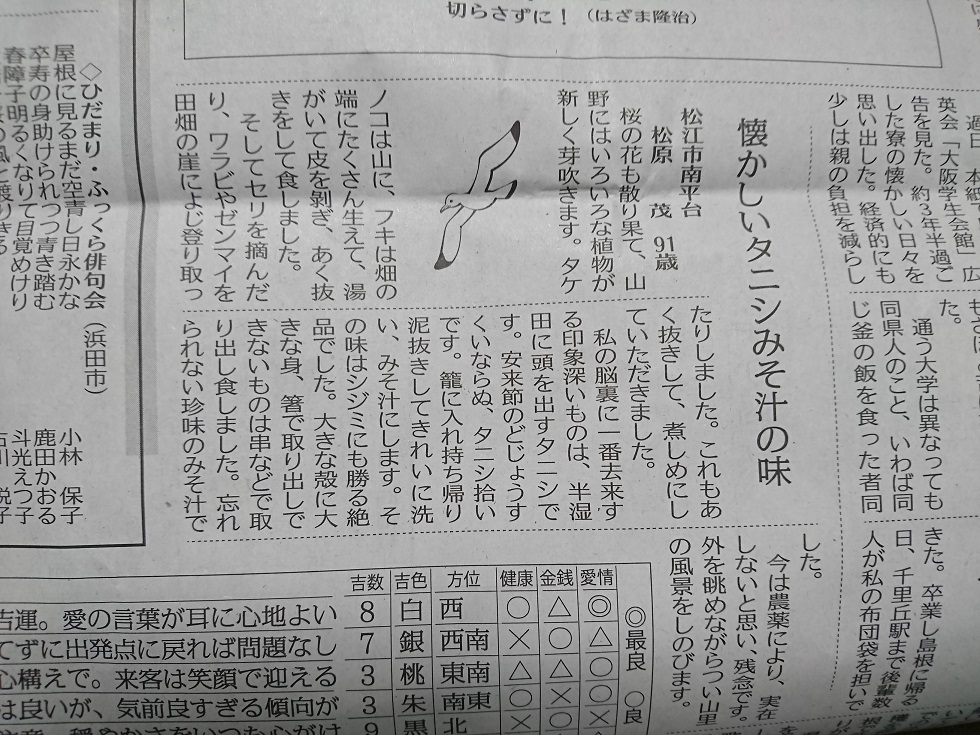 切らさずに！（はざま隆治）
過日、本紙で
英会「大阪学生会館」広
告を見た。約3年半過ご
した寮の懐かしい日々を
思い出した。経済的にも
少しは親の負担を減らし
た。
通う大学は異なっても
同県人のこと、いわば同
じ釜の飯を食った者同
きた。卒業し島根に帰る
日、千里丘駅まで後輩数
人が私の布団袋を担いで
懐かしいタニシみそ汁の味
松江市南平台
松原　茂　91歳
桜の花も散り果て、山
野にはいろいろな植物が
新しく芽吹きます。タケ
ノコは山に、フキは畑の
端にたくさん生えて、湯
がいて皮を剥ぎ、あく抜
きをして食しました。
そしてセリを摘んだ
り、ワラビやゼンマイを
田畑の崖によじ登り取っ
たりしました。これもあ
く抜きして、煮しめにし
ていただきました。
私の脳裏に一番去来す
る印象深いものは、半湿
田に頭を出すタニシで
す。安来節のどじょうす
くいならぬ、タニシ拾い
です。籠に入れ持ち帰り
泥抜きしてきれいに洗
い、みそ汁にします。そ
の味はシジミにも勝る絶
品でした。大きな殻に大
きな身、箸で取り出しで
きないものは串などで取
り出し食しました。忘れ
られない珍味のみそ汁で
した。
今は農薬により、実在
しないと思い、残念です。
外を眺めながらつい山里
の風景をしのびます。
◇ひだまり・ふっくら俳句会（浜田市）
屋根に見るまだ空青し日永かな
小林　保子
卒寿の身助けられつつ青き踏む
鹿田かおる
春障子明るくなりて目覚めけり
斗光えつ子
◎最良　○良
愛情　金銭　健康　方位　吉色　吉数
◎　△　○　西　白　8
吉運。愛の言葉が耳に心地よい
△　○　×　西南　銀　7
てずに出発点に戻れば問題なし
○　△　△　東南　桃　3
心構えで。来客は笑顔で迎える
○　×　○　南東　朱　3
は良いが、気前良すぎる傾向が
×　○　×　北　黒　9